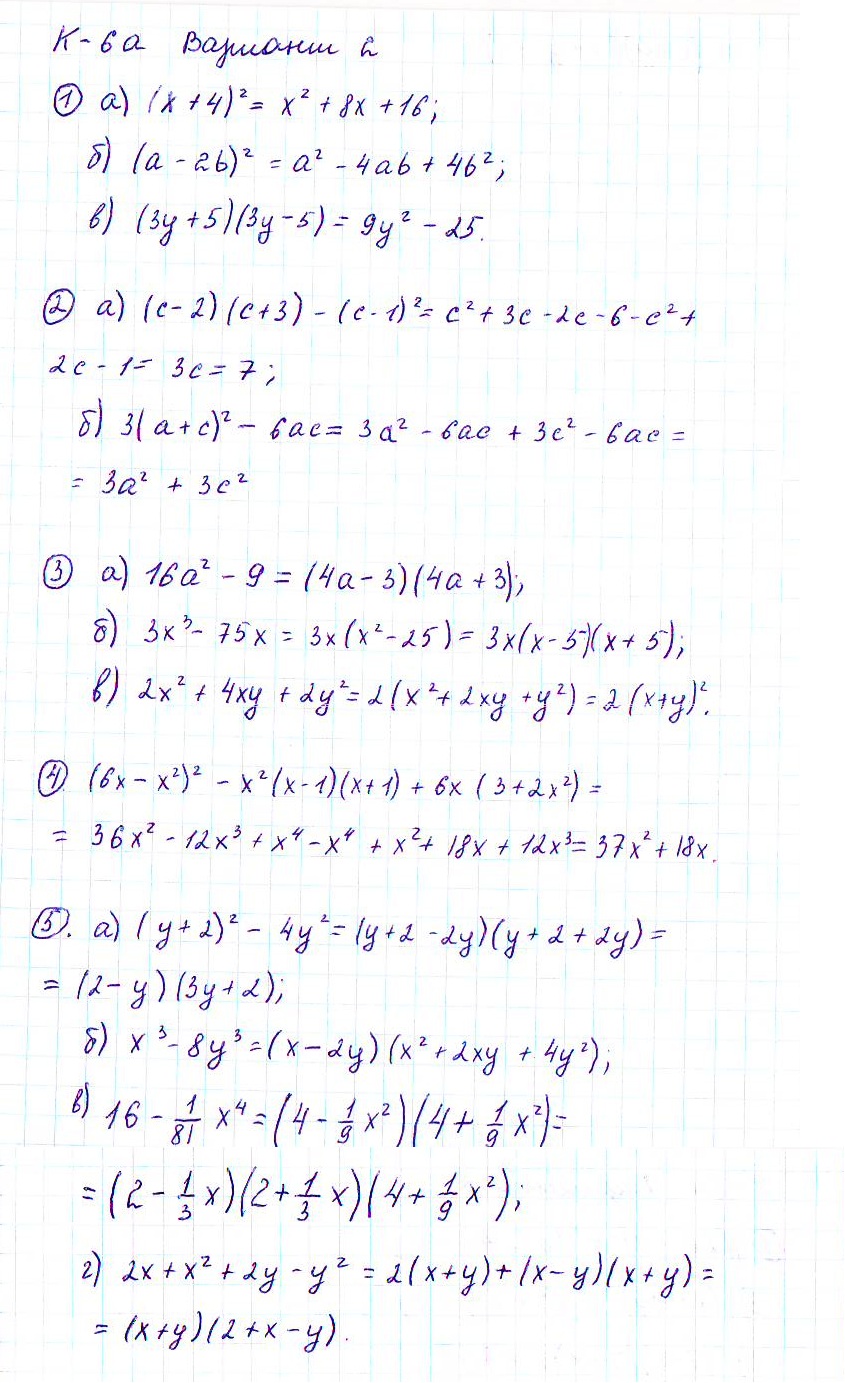 К-6а Вариант 2
① а) (x + 4)² = x² + 8x + 16;
б) (a - 2b)² = a² - 4ab + 4b²;
в) (3y + 5)(3y - 5) = 9y² - 25.
② а) (c - 2)(c + 3) - (c - 1)² = c² + 3c - 2c - 6 - c² +
2c - 1 = 3c = 7;
б) 3(a + c)² - 6ac = 3a² - 6ac + 3c² - 6ac =
= 3a² + 3c²
③ а) 16a² - 9 = (4a - 3)(4a + 3);
б) 3x³ - 75x = 3x(x² - 25) = 3x(x - 5)(x + 5);
в) 2x² + 4xy + 2y² = 2(x² + 2xy + y²) = 2(x + y)².
④ (6x - x²)² - x²(x - 1)(x + 1) + 6x (3 + 2x²) =
= 36x² - 12x³ + x⁴ - x⁴ + x² + 18x + 12x³ = 37x² + 18x.
⑤. а) (y + 2)² - 4y² = (y + 2 - 2y)(y + 2 + 2y) =
= (2 - y)(3y + 2);
б) x³ - 8y³ = (x - 2y)(x² + 2xy + 4y²);
в) 16 - 1/81 x⁴ = (4 - 1/9 x²)(4 + 1/9 x²) =
= (2 - 1/3 x)(2 + 1/3 x)(4 + 1/9 x²);
г) 2x + x² + 2y - y² = 2(x + y) + (x - y)(x + y) =
= (x + y)(2 + x - y).